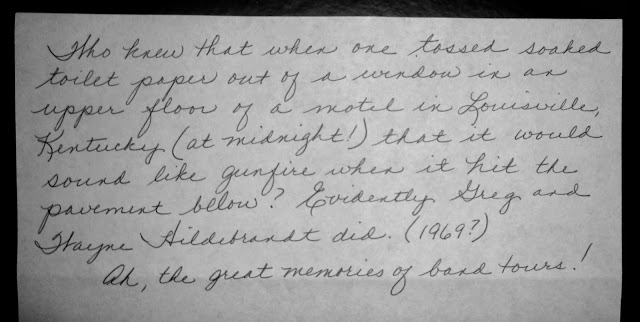 Who knew that when one tossed soaked
toilet paper out of a window in an
upper floor of a motel in Louisville,
Kentucky (at midnight!) that it would
sound like gunfire when it hit the
pavement below? Evidently Greg and
Wayne Hildebrandt did. (1969?)
Ah, the great memories of band tours!